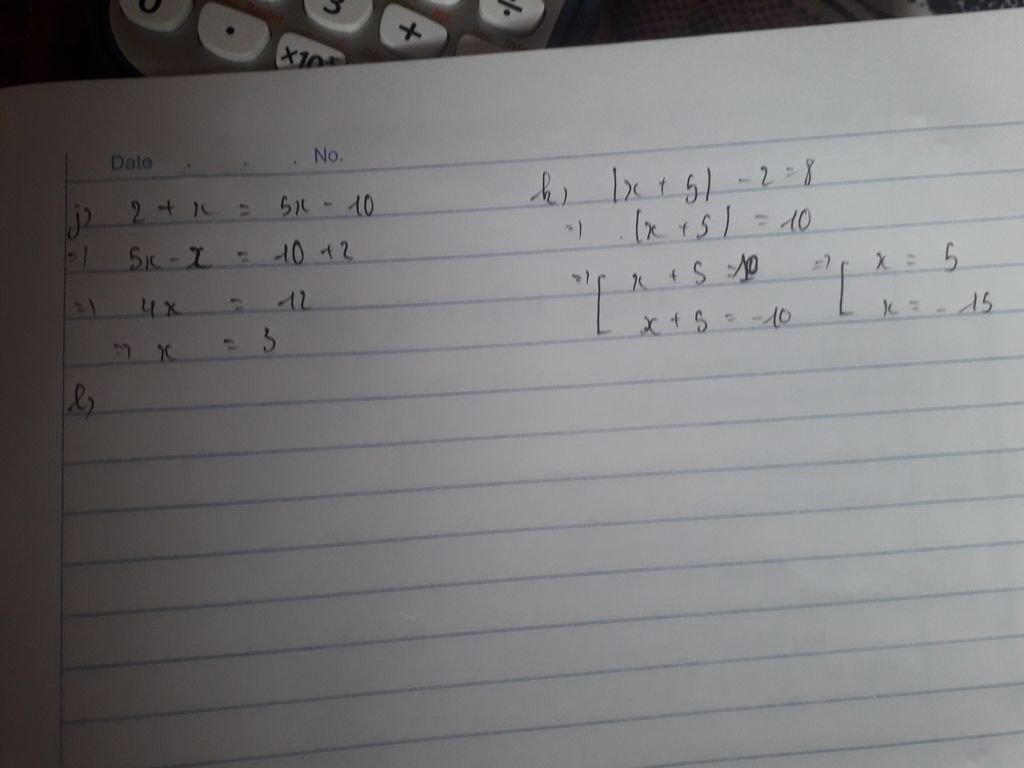 0 . 3 + ÷
×10ˣ
Date . . . No.
j) 2 + x = 5x - 10
=) 5x - x = 10 + 2
=) 4x = 12
=) x = 3
l)
k) |x + 5| - 2 = 8
=) |x + 5| = 10
=) [ x + 5 = 10 => [ x = 5
x + 5 = -10 x = -15